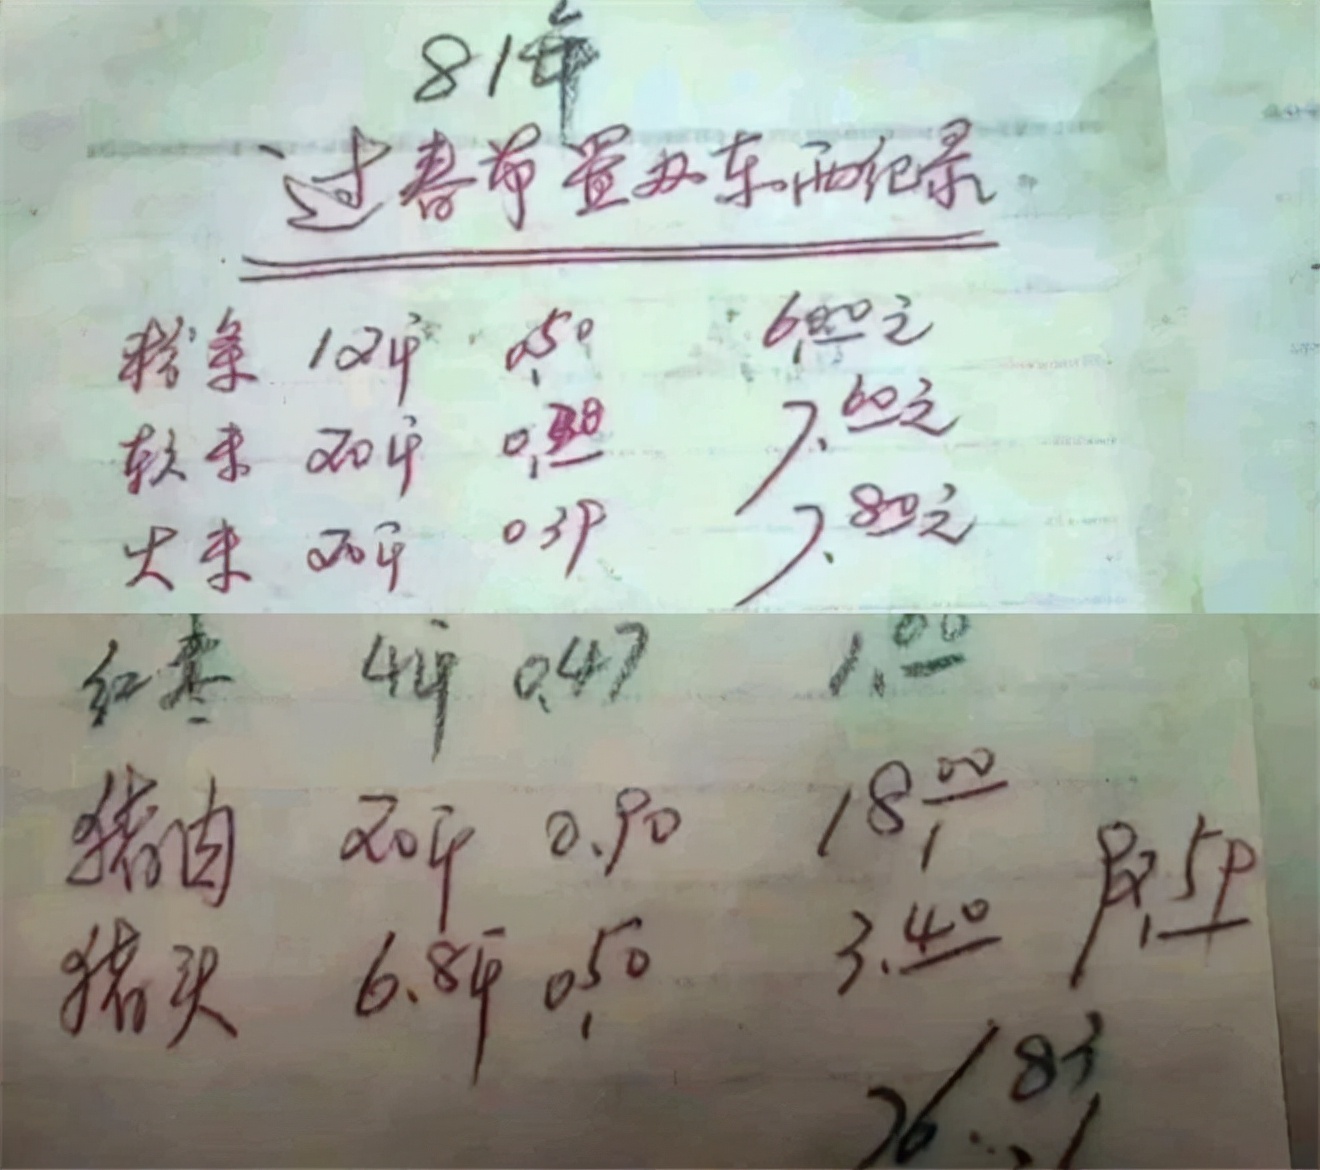 81年
过春节置办东西纪录
粉条 12斤 0.50 6.00元
软米 20斤 0.38 7.60元
大米 20斤 0.39 7.80元
红枣 4斤 0.47 1.00
猪肉 20斤 0.90 18.00
猪头 6.8斤 0.50 3.40